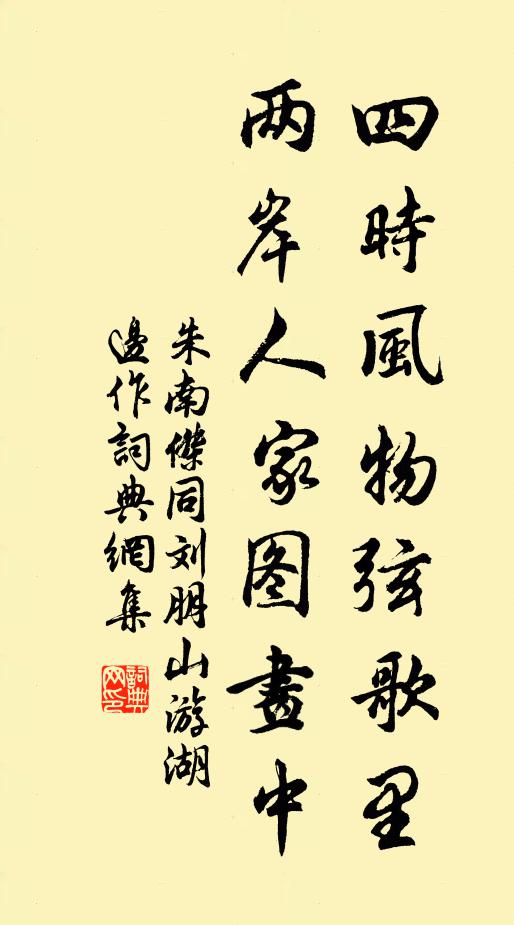 四時風物弦歌里
两岸人家图畫中
朱南傑同刘朋山游湖
邊作詞典網集
詞典
网印